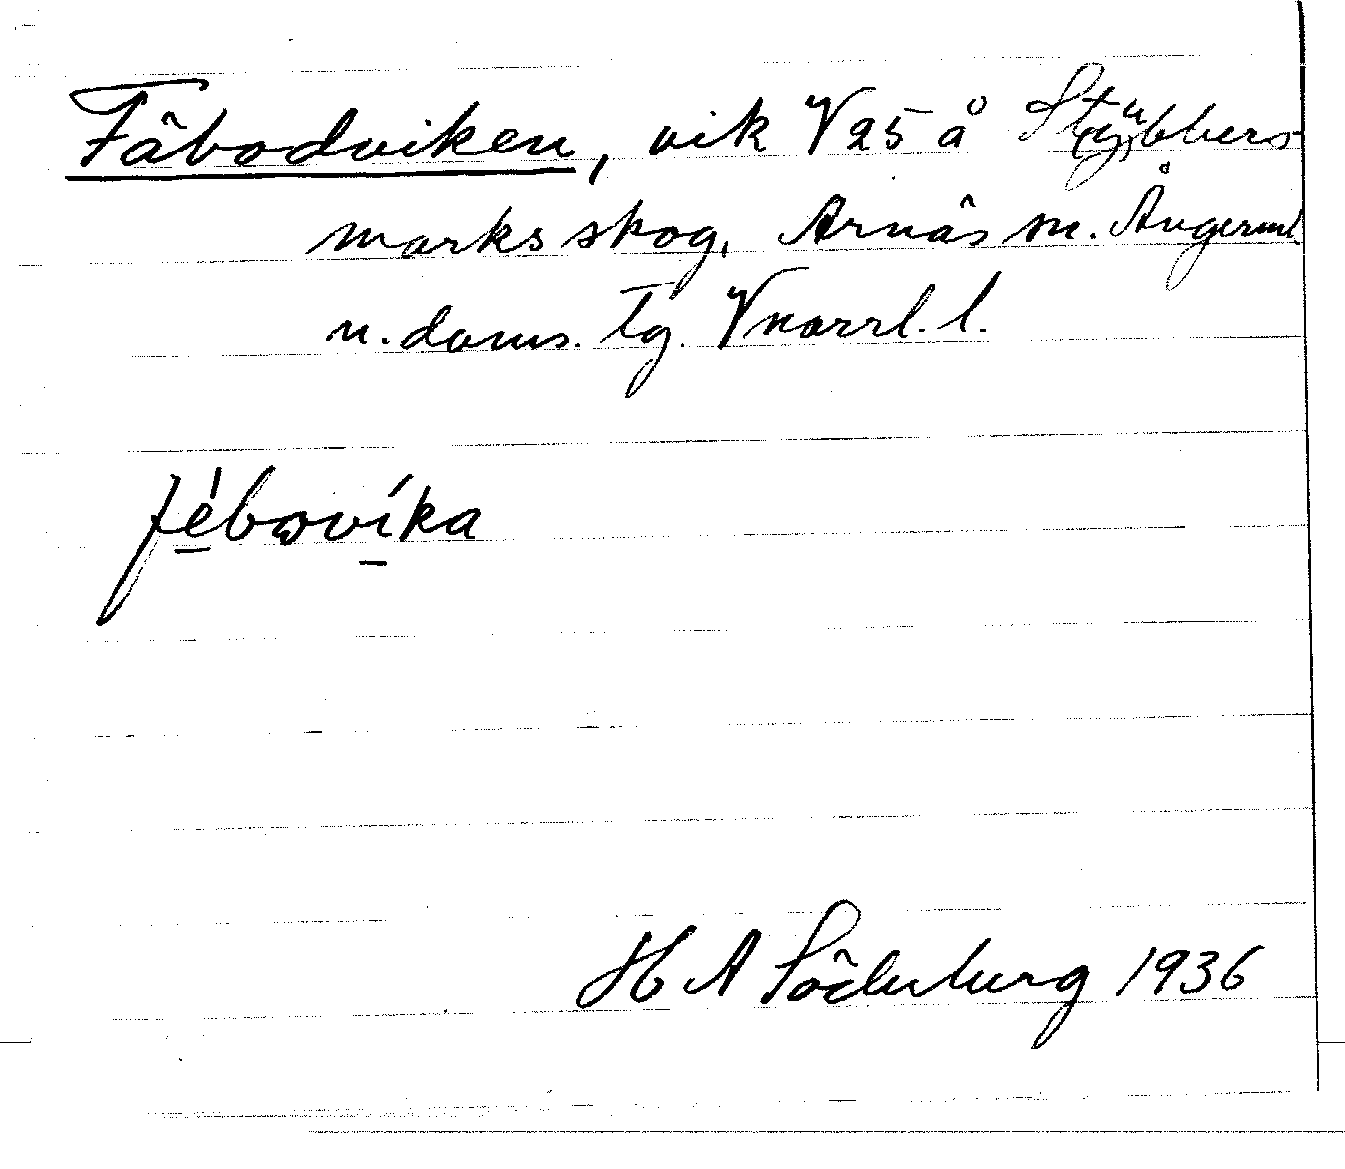 Fäbodviken, vik V25 å Stybbers-
marks skog, Arnäs sn. Ångerml.
n. doms. tg. Vnorrl. l.
fébωvíka
H A Söderberg 1936